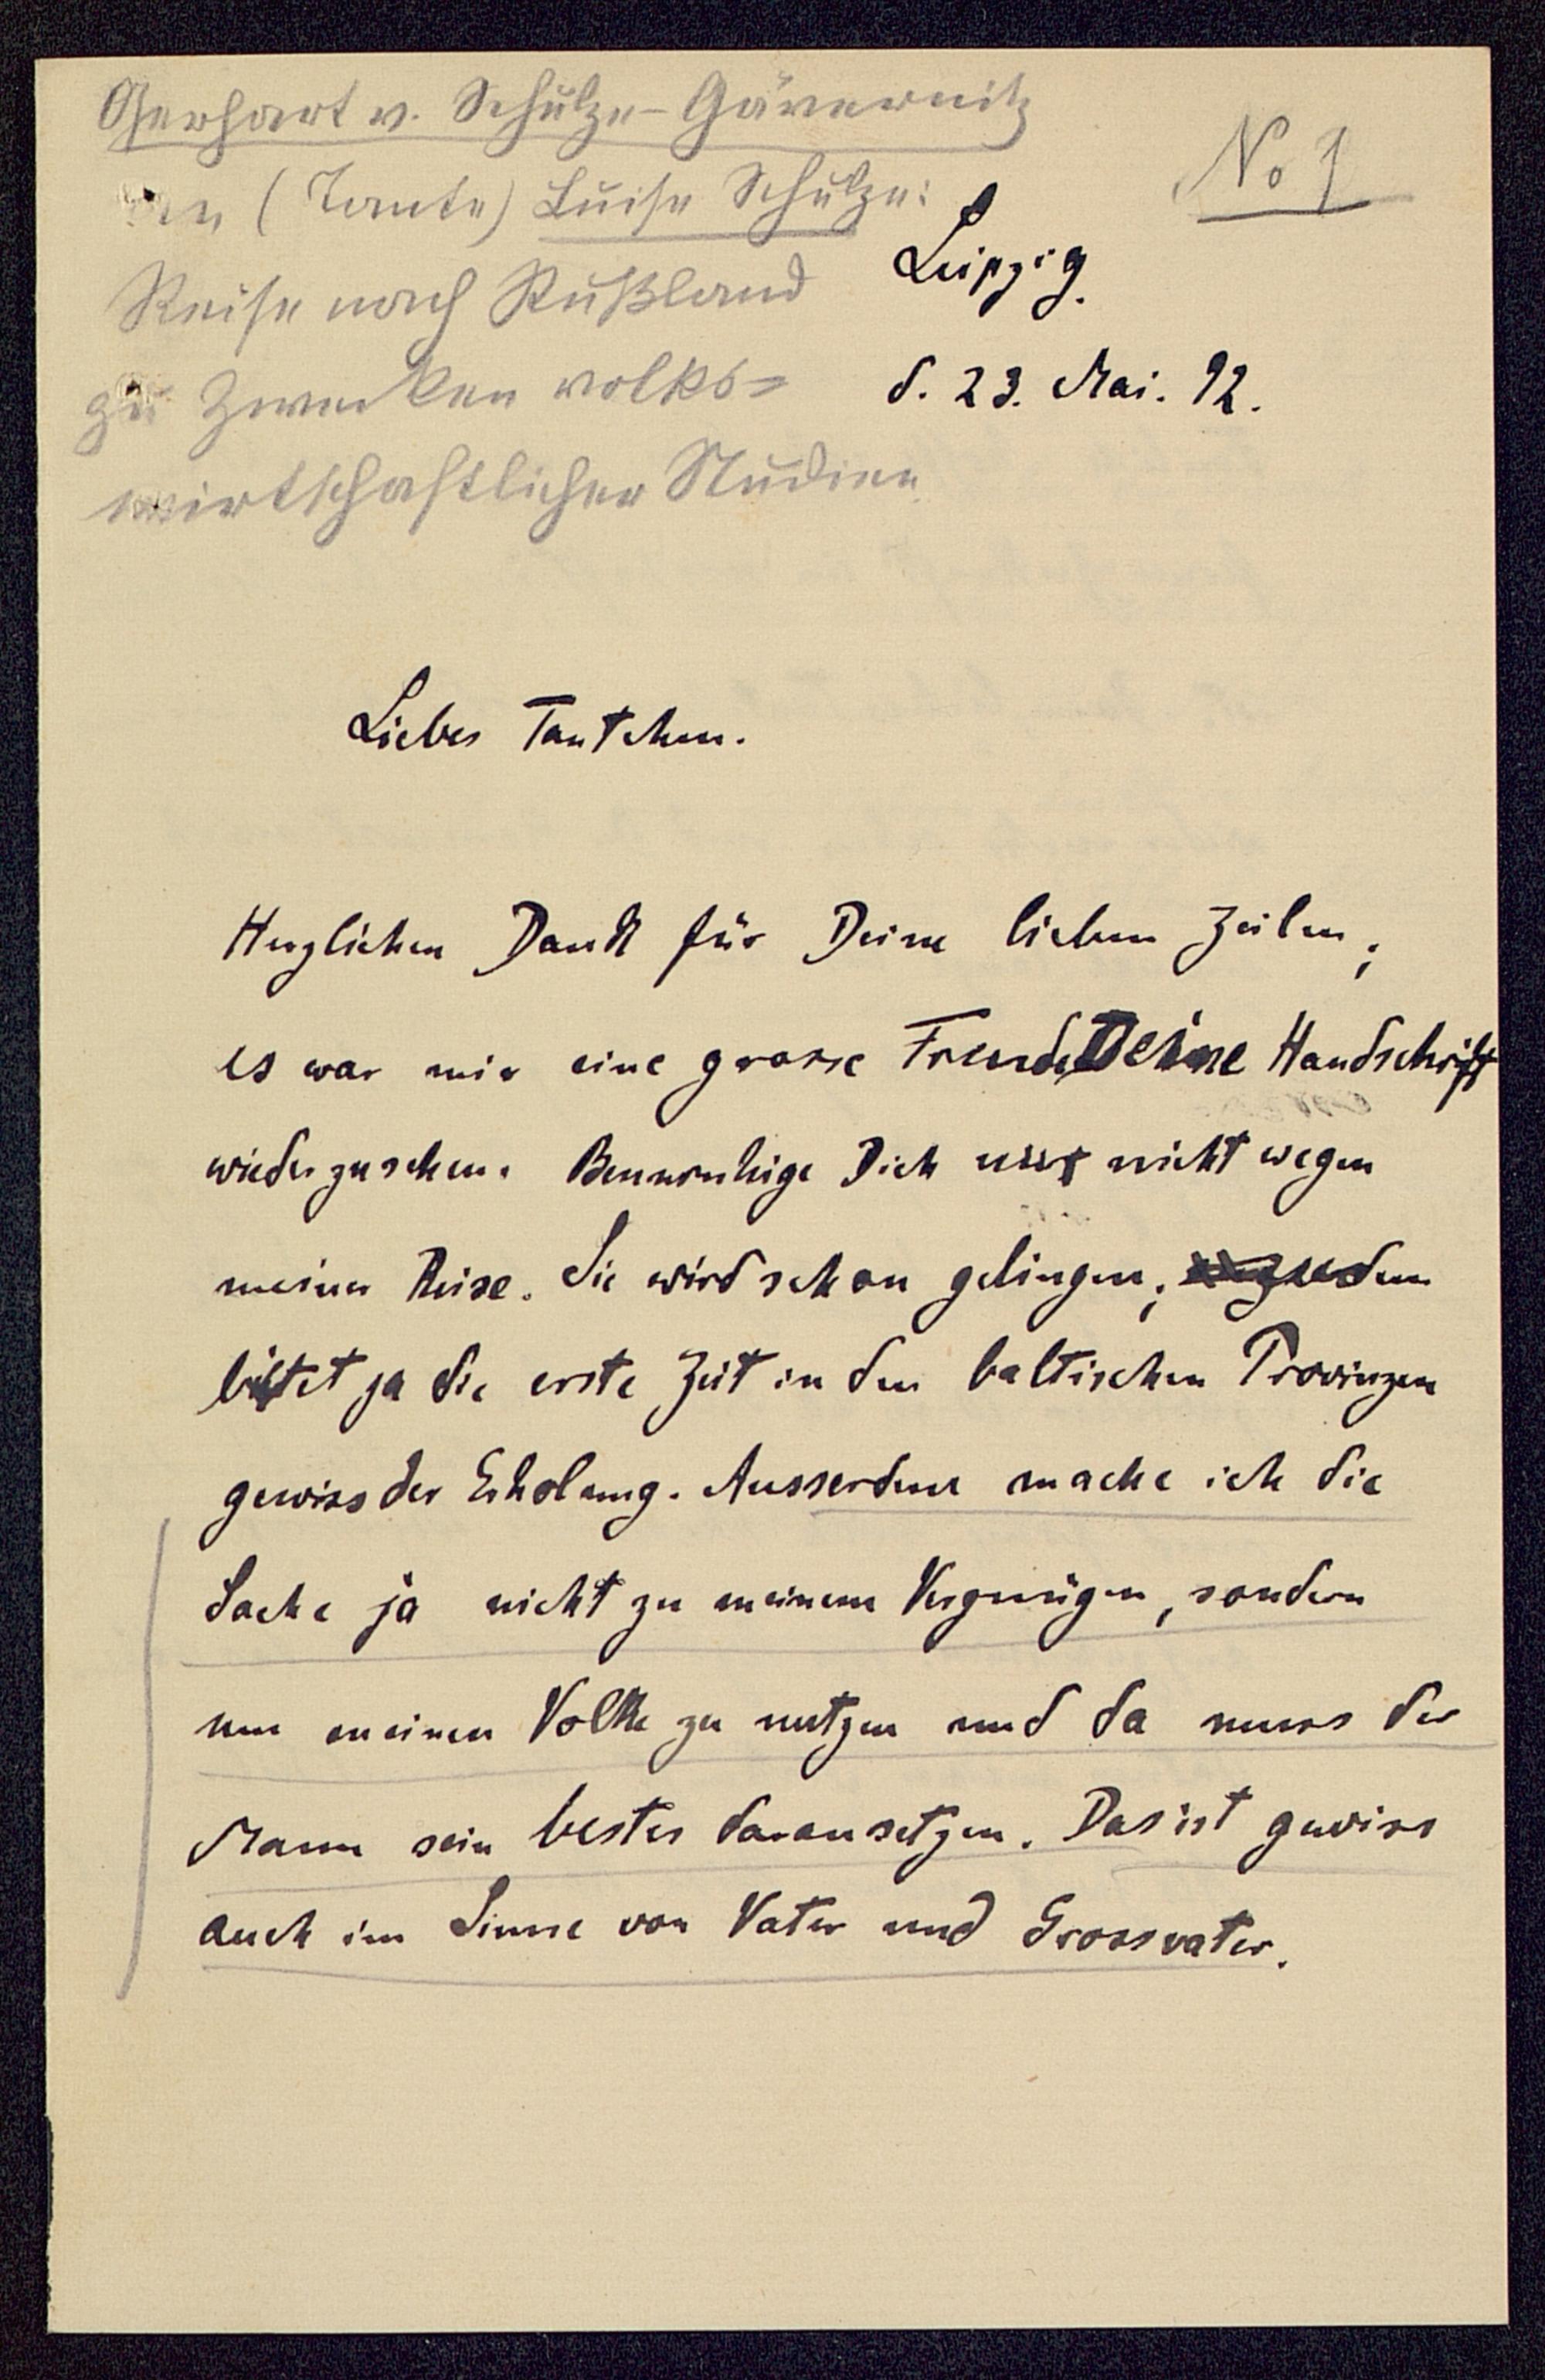 Gerhart v. Schulze-Gävernitz
an (Tante) Luise Schulze:
Reise nach Rußland
zu Zwecken volks=
wirtschaftlicher Studien
No 1
Leipzig.
d. 23. Mai. 92.
Liebes Tantchen.
Herzlichen Dank für Deine lieben Zeilen;
es war mir eine grosse Freude Deine Handschrift
wiederzusehen. Beunruhige Dich nur nicht wegen
meiner Reise. Sie wird schon gelingen; zudem
bietet ja die erste Zeit in den baltischen Provinzen
gewiss der Erholung. Ausserdem mache ich die
Sache ja nicht zu meinem Vergnügen, sondern
um meinem Volke zu nutzen und da muss der
Mann sein bestes daransetzen. Das ist gewiss
auch im Sinne von Vater und Grossvater.